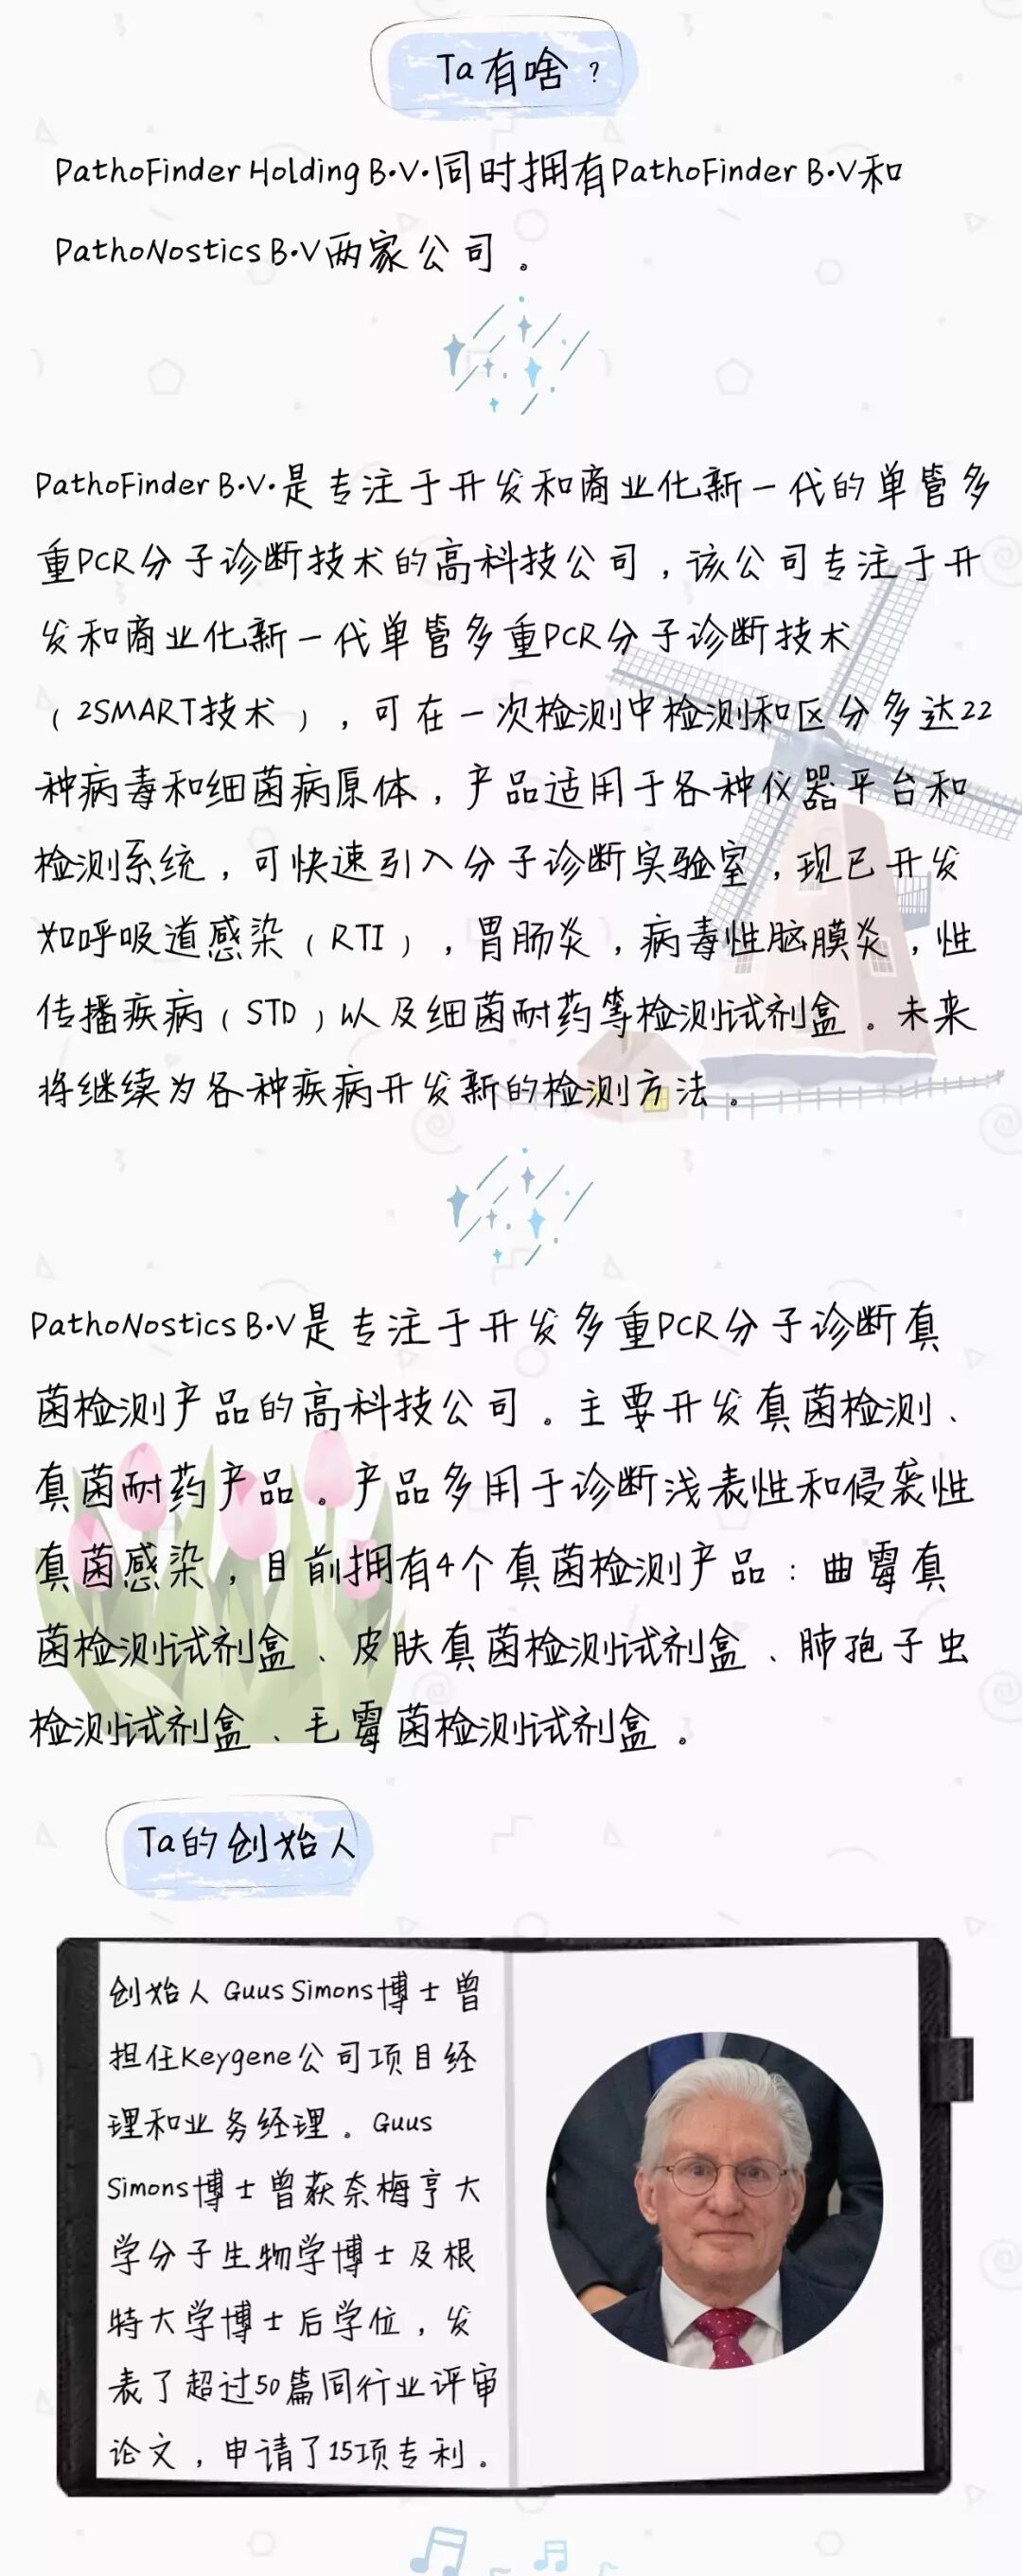 Ta有啥？
PathoFinder Holding B.V.同时拥有PathoFinder B.V和
PathoNostics B.V两家公司。
PathoFinder B.V.是专注于开发和商业化新一代的单管多
重PCR分子诊断技术的高科技公司，该公司专注于开
发和商业化新一代单管多重PCR分子诊断技术
（2SMART技术），可在一次检测中检测和区分多达22
种病毒和细菌病原体，产品适用于各种仪器平台和
检测系统，可快速引入分子诊断实验室，现已开发
如呼吸道感染（RTI），胃肠炎，病毒性脑膜炎，性
传播疾病（STD）以及细菌耐药等检测试剂盒。未来
将继续为各种疾病开发新的检测方法。
PathoNostics B.V是专注于开发多重PCR分子诊断真
菌检测产品的高科技公司。主要开发真菌检测、
真菌耐药产品。产品多用于诊断浅表性和侵袭性
真菌感染，目前拥有4个真菌检测产品：曲霉真
菌检测试剂盒、皮肤真菌检测试剂盒、肺孢子虫
检测试剂盒、毛霉菌检测试剂盒。
Ta的创始人
创始人 Guus Simons博士曾
担任Keygene公司项目经
理和业务经理。Guus
Simons博士曾获奈梅亨大
学分子生物学博士及根
特大学博士后学位，发
表了超过50篇同行业评审
论文，申请了15项专利。